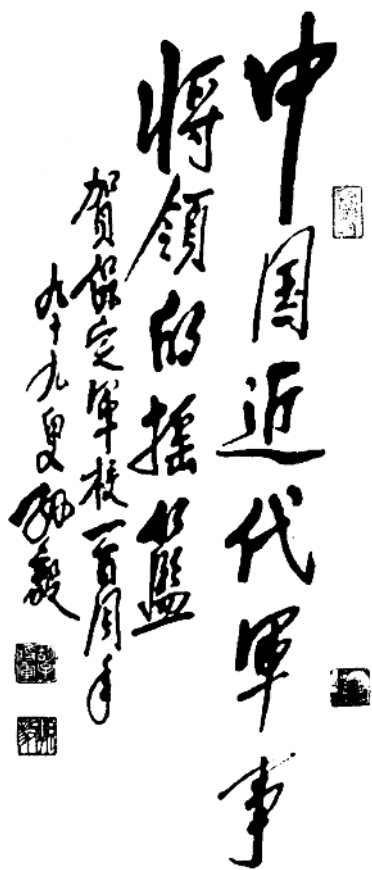 中国近代軍事
将領的摇籃
賀保定軍校一百周年
九十九叟孙毅